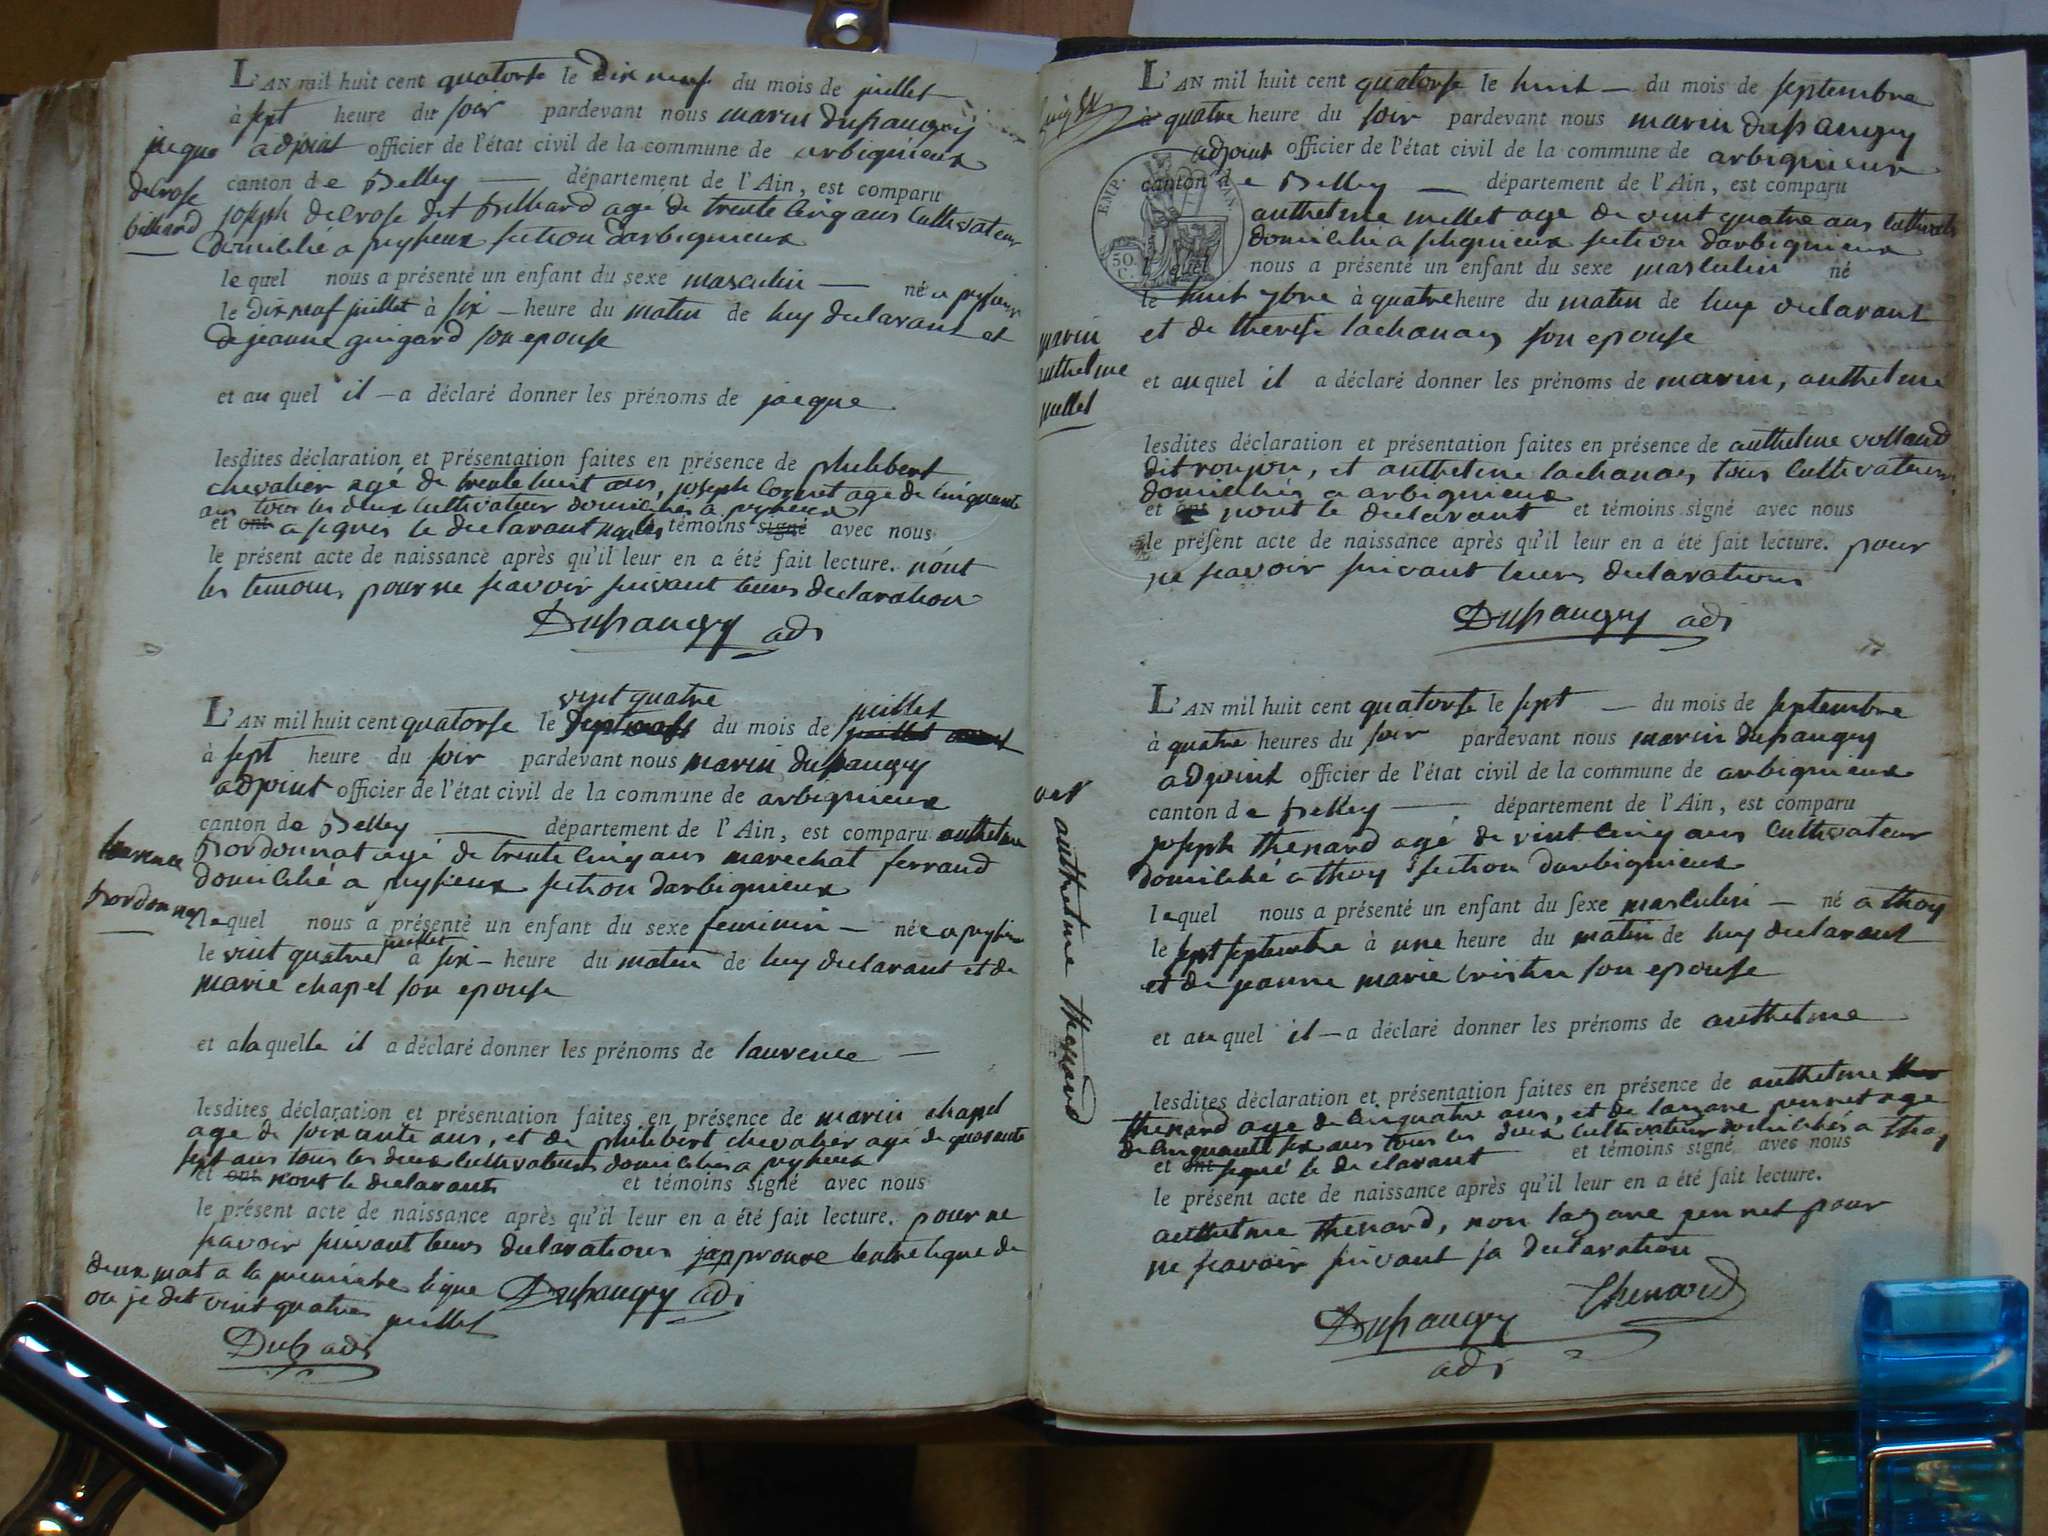 L'AN mil huit cent quatorse le dix neuf du mois de juillet
à sept heure du soir pardevant nous marin dupraugey
adjoint officier de l'état civil de la commune de arbignieux
canton de Belley — département de l'Ain, est comparu
joseph decrose dit billiard age de trente cinq ans cultivateur
domicilié a pysieux section darbignieux
jacque
decrose
billiard
le quel nous a présenté un enfant du sexe masculin — né a pysieux
le dix neuf juillet à six – heure du matin de luy declarant et
de jeanne guigard son epouse
et au quel il – a déclaré donner les prénoms de jacque
lesdites déclaration et présentation faites en présence de philibert
chevalier agé de trente huit ans, joseph cornet age de cinquante
ans tous les deux cultivateur domiciliés a pysieux
et ont a signés le declarant non les témoins signé avec nous
le présent acte de naissance après qu'il leur en a été fait lecture. n'ont
les temoins pour ne scavoir suivant leurs declaration
Dupraugey adj
vint quatre juillet
L'AN mil huit cent quatorse le du mois de juillet
à sept heure du soir pardevant nous marin dupraugey
adjoint officier de l'état civil de la commune de arbignieux
canton de Belley — département de l'Ain, est comparu anthelme
bordonnat agé de trente cinq ans marechal ferrand
domicilié a pysieux section darbignieux
laurence
bordonnat
lequel nous a présenté un enfant du sexe feminin — née a pysieux
le vint quatre juillet à six – heure du matin de luy declarant et de
marie chapel son epouse
et a laquelle il a déclaré donner les prénoms de laurence —
lesdites déclaration et présentation faites en présence de marin chapel
age de soixante ans, et de philibert chevalier agé de quarante
sept ans tous les deux cultivateurs domiciliés a pysieux
et ont nont le declarant et témoins signé avec nous
le présent acte de naissance après qu'il leur en a été fait lecture. pour ne
scavoir suivant leurs declarations japprouve lentreligne de
deux mot a la premiere ligne Dupraugey adj
ou je dit vint quatre juillet
Dup adj
L'AN mil huit cent quatorse le huit — du mois de septembre
à quatre heure du soir pardevant nous marin dupraugey
adjoint officier de l'état civil de la commune de arbignieux
canton de Belley — département de l'Ain, est comparu
EMP.
50.
C.
anthelme millet age de vint quatre ans cultivateur
domicilié a section darbignieux
lequel nous a présenté un enfant du sexe masculin né
le huit 7bre à quatre heure du matin de luy declarant
et de therese lachanas son epouse
marin
anthelme
millet
et auquel il a déclaré donner les prénoms de marin, anthelme
lesdites déclaration et présentation faites en présence de anthelme volland
dit ronjon, et anthelme lachanas tous cultivateurs
domiciliés a arbignieux
et ont nont le declarant et témoins signé avec nous
le présent acte de naissance après qu'il leur en a été fait lecture. pour
ne scavoir suivant leurs declarations
Dupraugey adj
L'AN mil huit cent quatorse le sept — du mois de septembre
à quatre heures du soir pardevant nous marin dupraugey
adjoint officier de l'état civil de la commune de arbignieux
canton de Belley — département de l'Ain, est comparu
joseph thenard agé de vint cinq ans cultivateur
domicilié a thoy section darbignieux
anthelme thenard
lequel nous a présenté un enfant du sexe masculin — né a thoy
le sept septembre à une heure du matin de luy declarant
et de jeanne marie cristin son epouse
et au quel il – a déclaré donner les prénoms de anthelme
lesdites déclaration et présentation faites en présence de anthelme
thenard age de cinquante ans, et de lazare pernet age
de cinquante six ans tous les deux cultivateur domiciliés a thoy
et ont signé le declarant et témoins signé avec nous
le présent acte de naissance après qu'il leur en a été fait lecture.
anthelme thenard, non lazare pernet pour
ne scavoir suivant sa declaration
Thenard
Dupraugey
adj